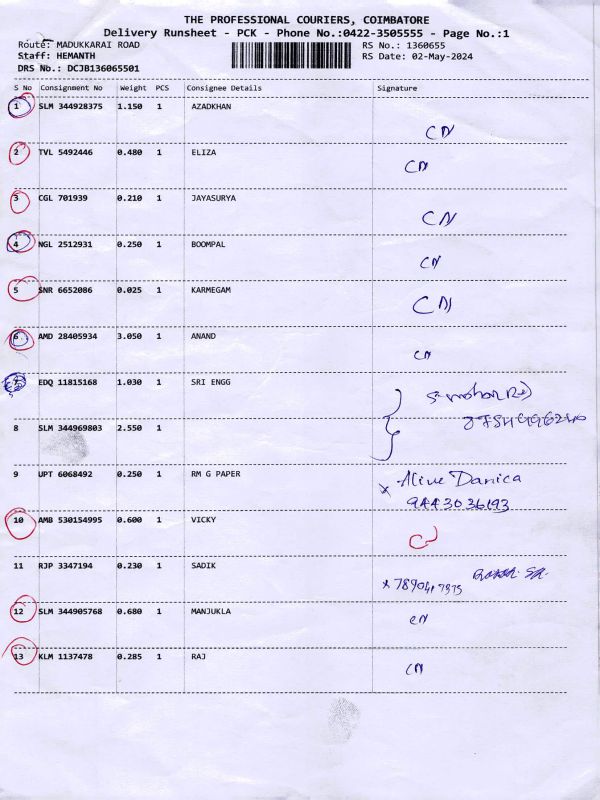 THE PROFESSIONAL COURIERS, COIMBATORE
Delivery Runsheet - PCK - Phone No.:0422-3505555 - Page No.:1
Route: MADUKKARAI ROAD RS No.: 1360655
Staff: HEMANTH RS Date: 02-May-2024
DRS No.: DCJB136065501
S No Consignment No Weight PCS Consignee Details Signature
1 SLM 344928375 1.150 1 AZADKHAN
CN
2 TVL 5492446 0.480 1 ELIZA
CN
3 CGL 701939 0.210 1 JAYASURYA
CN
4 NGL 2512931 0.250 1 BOOMPAL
CN
5 SNR 6652086 0.025 1 KARMEGAM
CN
6 AMD 28405934 3.050 1 ANAND
CN
7 EDQ 11815168 1.030 1 SRI ENGG
8 SLM 344969803 2.550 1
9 UPT 6068492 0.250 1 RM G PAPER
Danica
9443036193
10 AMB 530154995 0.600 1 VICKY
11 RJP 3347194 0.230 1 SADIK
12 SLM 344905768 0.680 1 MANJUKLA
CN
13 KLM 1137478 0.285 1 RAJ
CN